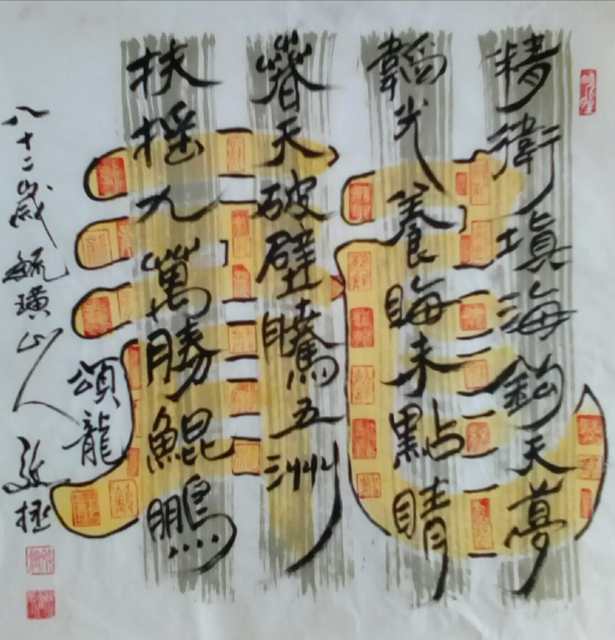 精衛填海鈞天夢
韜光養晦未點睛
春天破壁騰五洲
扶摇九萬勝鯤鵬
頌龍
八十二歲毓璜山人